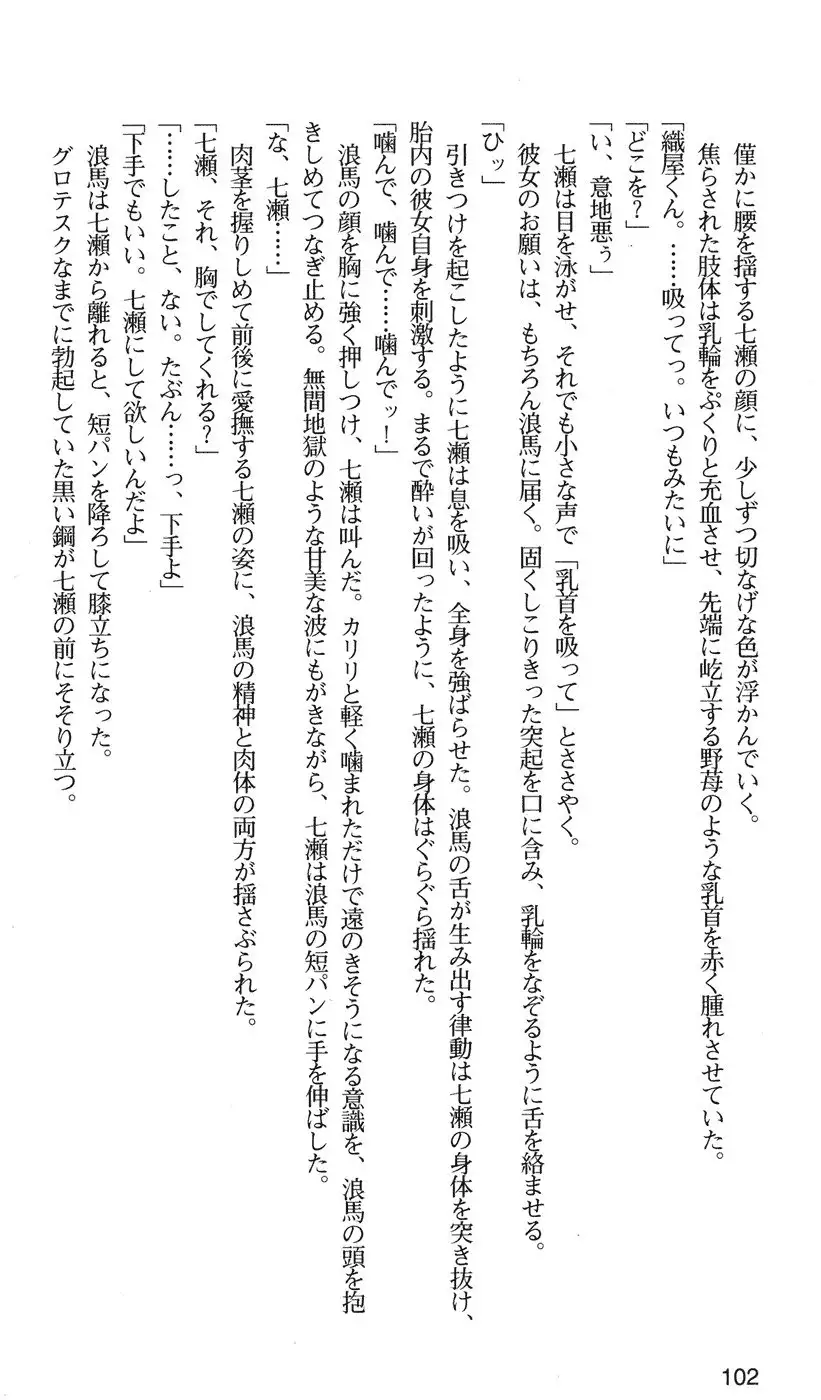 僅かに腰を揺する七瀬の顔に、少しずつ切なげな色が浮かんでいく。
焦らされた肢体は乳輪をぷくりと充血させ、先端に屹立する野苺のような乳首を赤く腫れさせていた。
「織屋くん。……吸ってっ。いつもみたいに」
「どこを？」
「い、意地悪ぅ」
七瀬は目を泳がせ、それでも小さな声で「乳首を吸って」とささやく。
彼女のお願いは、もちろん浪馬に届く。固くしこりきった突起を口に含み、乳輪をなぞるように舌を絡ませる。
「ひッ」
引きつけを起こしたように七瀬は息を吸い、全身を強ばらせた。浪馬の舌が生み出す律動は七瀬の身体を突き抜け、
胎内の彼女自身を刺激する。まるで酔いが回ったように、七瀬の身体はぐらぐら揺れた。
「噛んで、噛んで……噛んでッ！」
浪馬の顔を胸に強く押しつけ、七瀬は叫んだ。カリリと軽く噛まれただけで遠のきそうになる意識を、浪馬の頭を抱
きしめてつなぎ止める。無間地獄のような甘美な波にもがきながら、七瀬は浪馬の短パンに手を伸ばした。
「な、七瀬……」
肉茎を握りしめて前後に愛撫する七瀬の姿に、浪馬の精神と肉体の両方が揺さぶられた。
「七瀬、それ、胸でしてくれる？」
「……したこと、ない。たぶん……っ、下手よ」
「下手でもいい。七瀬にして欲しいんだよ」
浪馬は七瀬から離れると、短パンを降ろして膝立ちになった。
グロテスクなまでに勃起していた黒い鋼が七瀬の前にそそり立つ。
102